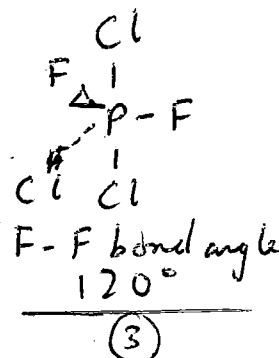 Cl
F
P-F
Cl Cl
F-F bond angle
120°
3